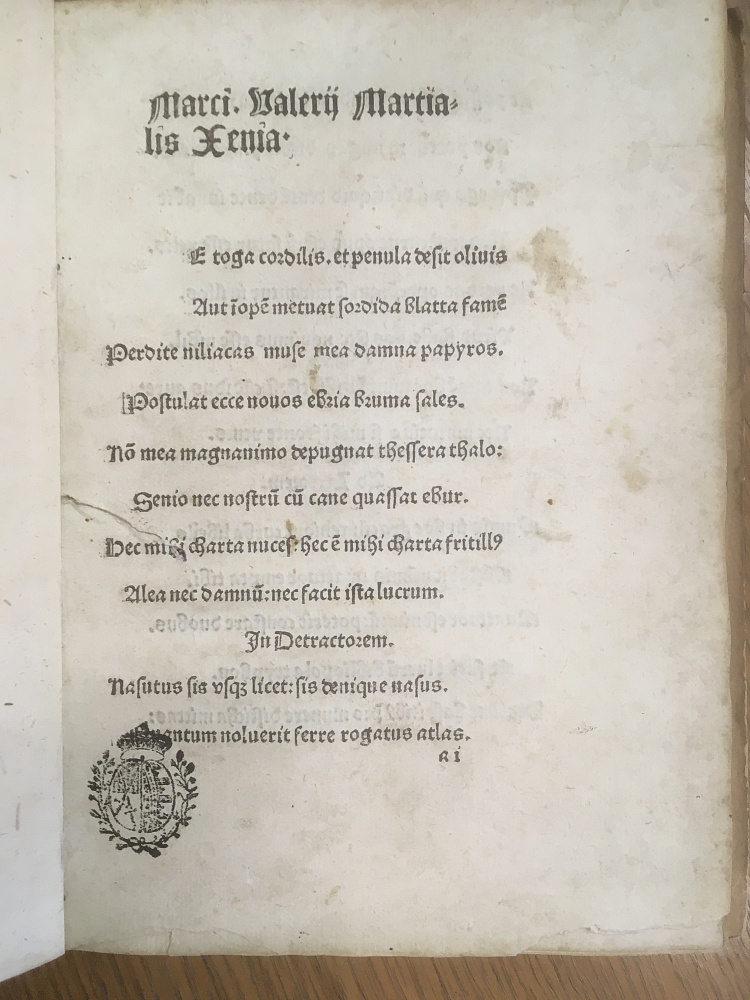 Marcī. Valerij Martia⸗
lis Xenia.
E toga cordilis. et penula desit oliuis
Aut īopē metuat sordida blatta famē
Perdite niliacas muse mea damna papyros.
Postulat ecce nouos ebria bruma sales.
Nō mea magnanimo depugnat thessera thalo:
Senio nec nostrū cū cane quassat ebur.
Hec mihi charta nuces: hec ē mihi charta fritillꝰ
Alea nec damnū: nec facit ista lucrum.
In Detractorem.
Nasutus sis vsqꝫ licet: sis denique nasus.
antum noluerit ferre rogatus atlas.
a i